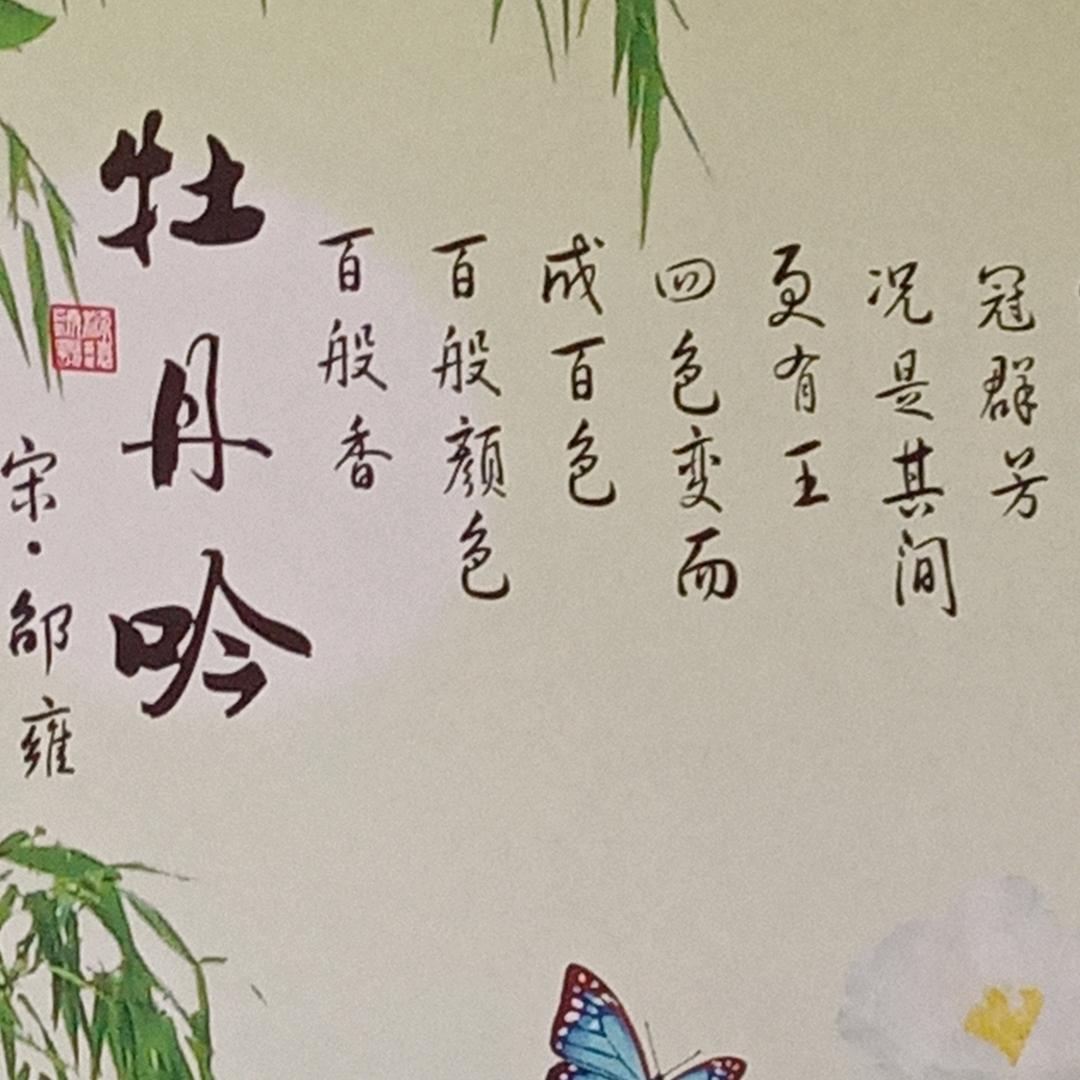 冠群芳
况是其间
更有王
四色变而
成百色
百般顏色
百般香
牡丹吟
宋·邵雍